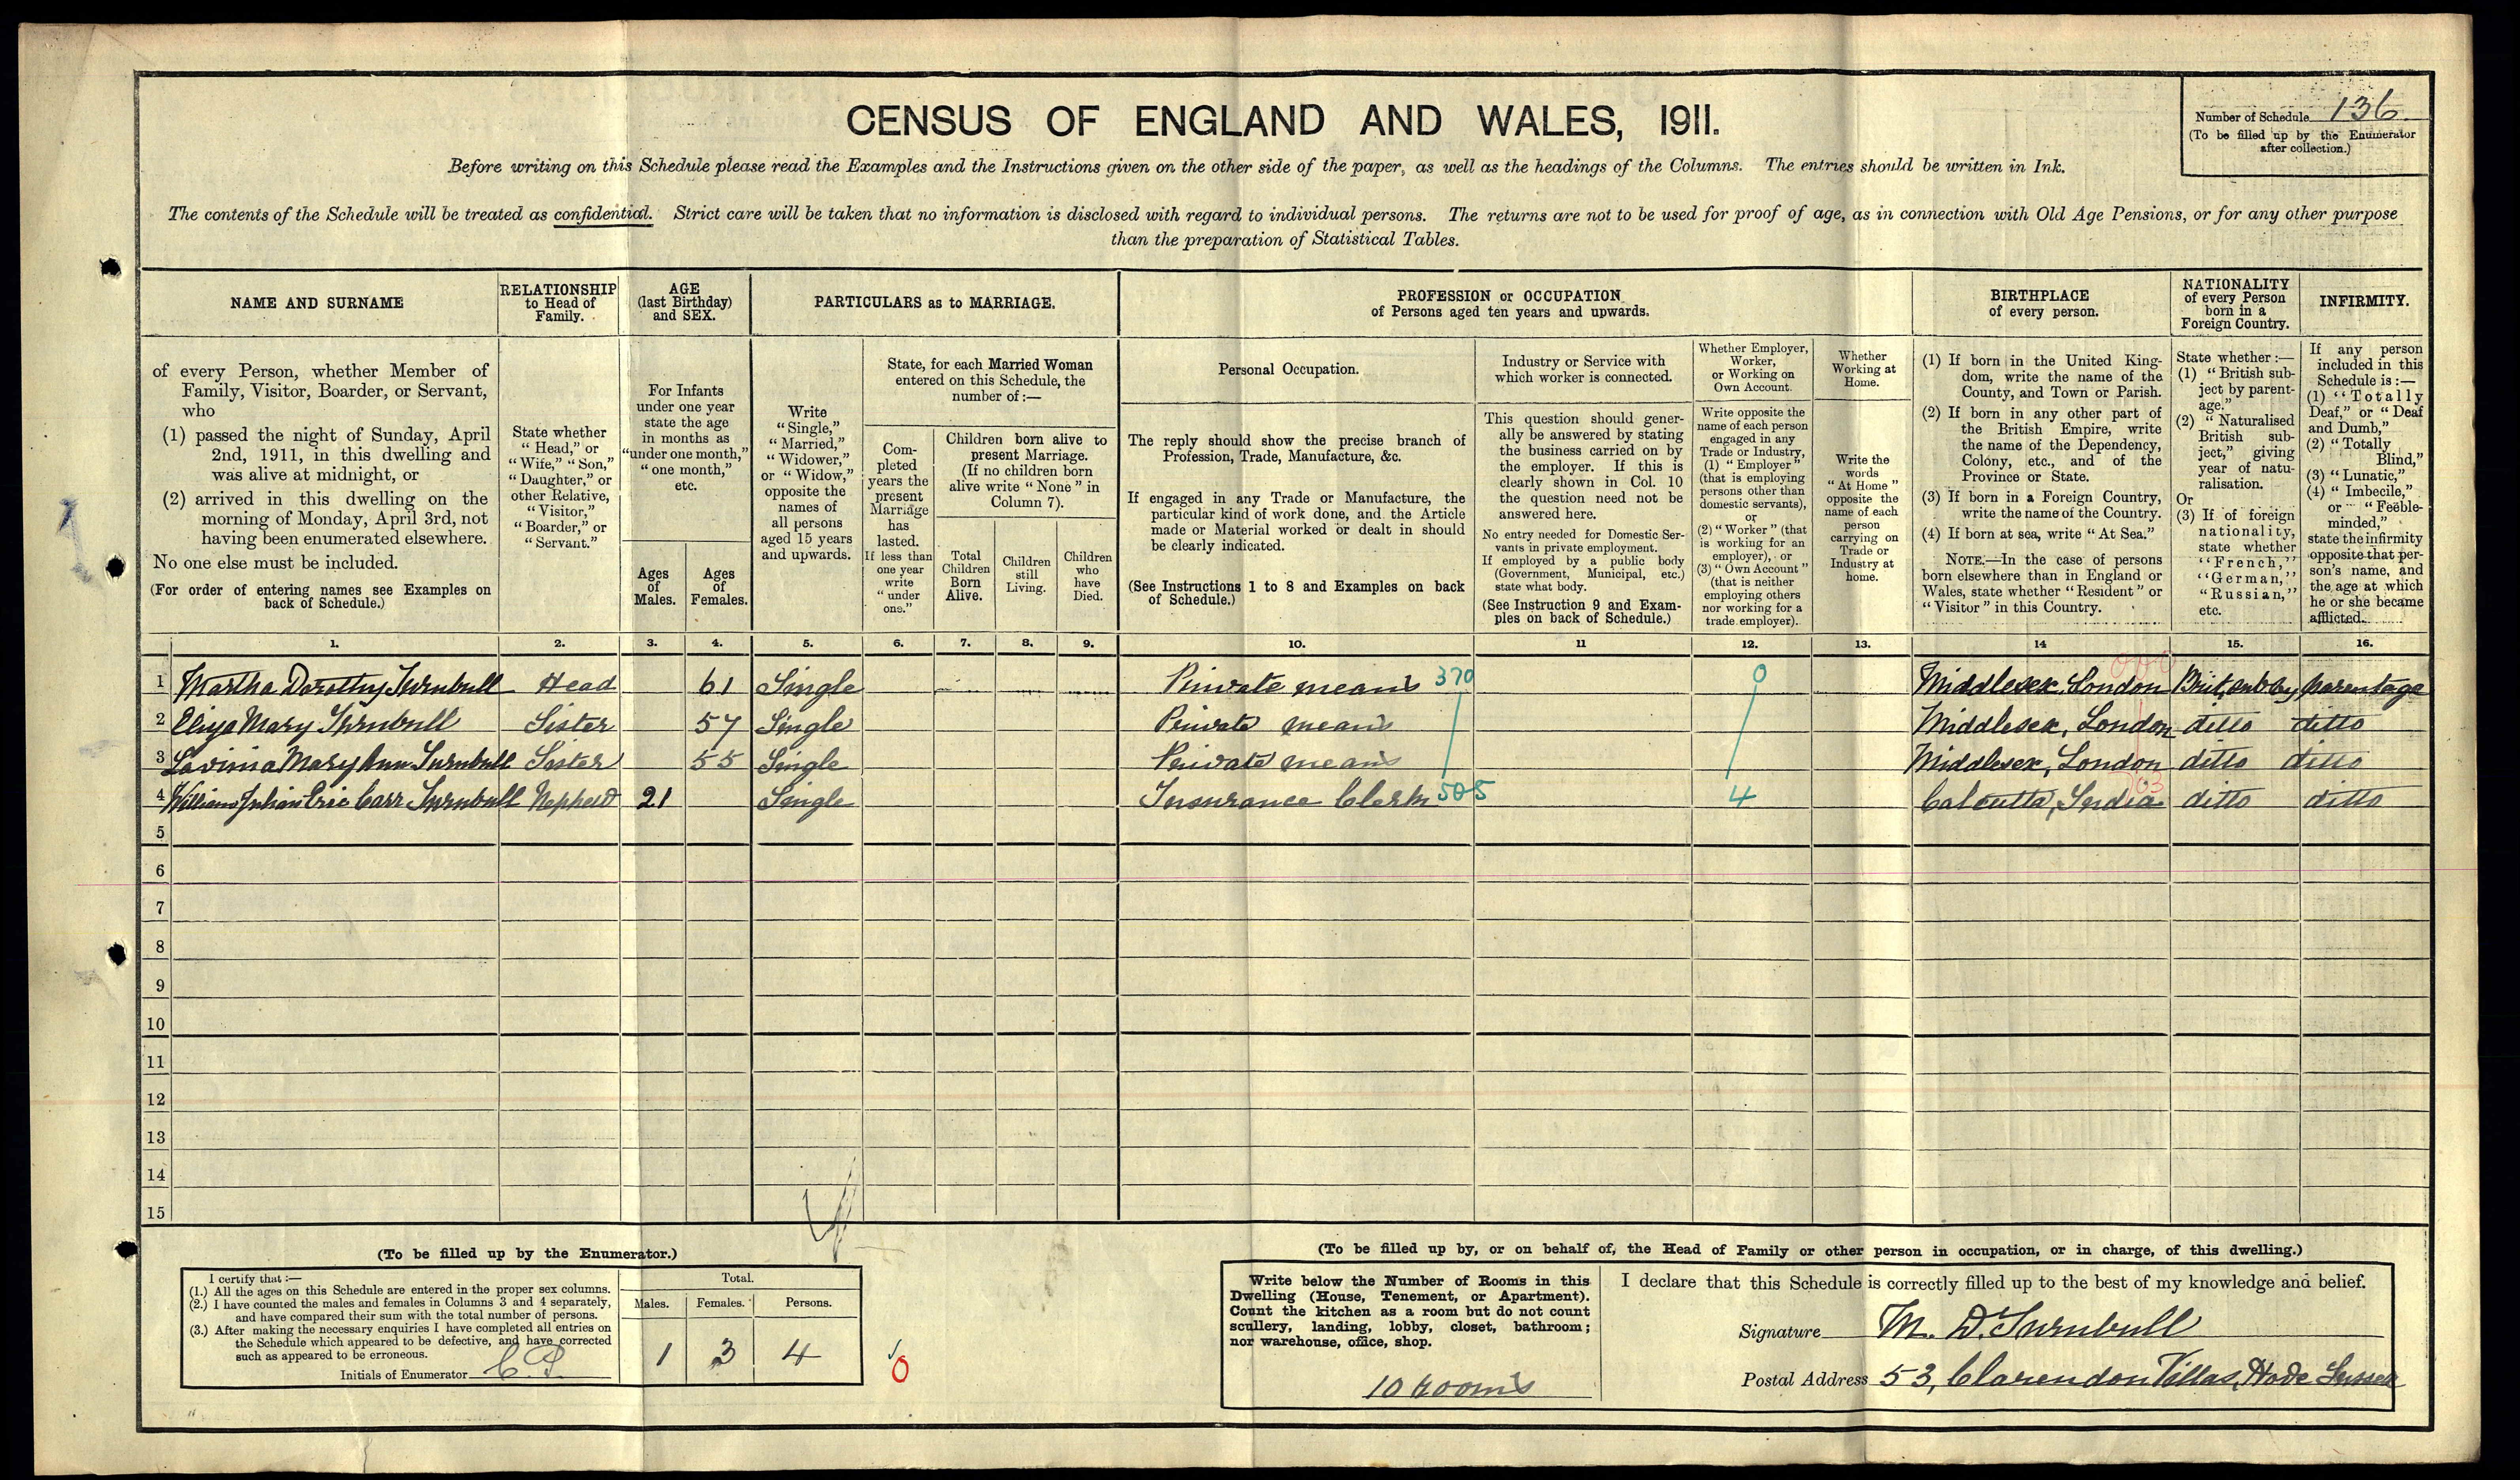 CENSUS OF ENGLAND AND WALES, 1911.
Number of Schedule 136.
(To be filled up by the Enumerator
after collection.)
Before writing on this Schedule please read the Examples and the Instructions given on the other side of the paper, as well as the headings of the Columns. The entries should be written in Ink.
The contents of the Schedule will be treated as confidential. Strict care will be taken that no information is disclosed with regard to individual persons. The returns are not to be used for proof of age, as in connection with Old Age Pensions, or for any other purpose
than the preparation of Statistical Tables.
NAME AND SURNAME
of every Person, whether Member of
Family, Visitor, Boarder, or Servant,
who
(1) passed the night of Sunday, April
2nd, 1911, in this dwelling and
was alive at midnight, or
(2) arrived in this dwelling on the
morning of Monday, April 3rd, not
having been enumerated elsewhere.
No one else must be included.
(For order of entering names see Examples on
back of Schedule.)
RELATIONSHIP
to Head of
Family.
State whether
"Head," or
"Wife," "Son,"
"Daughter," or
other Relative,
"Visitor,"
"Boarder," or
"Servant."
AGE
(last Birthday)
and SEX.
For Infants
under one year
state the age
in months as
"under one month,"
"one month,"
etc.
Ages
of
Males.
Ages
of
Females.
PARTICULARS as to MARRIAGE.
Write
"Single,"
"Married,"
"Widower,"
or "Widow,"
opposite the
names of
all persons
aged 15 years
and upwards.
State, for each Married Woman
entered on this Schedule, the
number of:—
Com-
pleted
years the
present
Marriage
has
lasted.
If less than
one year
write
"under
one."
Children born alive to
present Marriage.
(If no children born
alive write "None" in
Column 7).
Total
Children
Born
Alive.
Children
still
Living.
Children
who
have
Died.
PROFESSION or OCCUPATION
of Persons aged ten years and upwards.
Personal Occupation.
The reply should show the precise branch of
Profession, Trade, Manufacture, &c.
If engaged in any Trade or Manufacture, the
particular kind of work done, and the Article
made or Material worked or dealt in should
be clearly indicated.
(See Instructions 1 to 8 and Examples on back
of Schedule.)
Industry or Service with
which worker is connected.
This question should gener-
ally be answered by stating
the business carried on by
the employer. If this is
clearly shown in Col. 10
the question need not be
answered here.
No entry needed for Domestic Ser-
vants in private employment.
If employed by a public body
(Government, Municipal, etc.)
state what body.
(See Instruction 9 and Exam-
ples on back of Schedule.)
Whether Employer,
Worker,
or Working on
Own Account.
Write opposite the
name of each person
engaged in any
Trade or Industry,
(1) "Employer"
(that is employing
persons other than
domestic servants),
or
(2) "Worker" (that
is working for an
employer), or
(3) "Own Account"
(that is neither
employing others
nor working for a
trade employer).
Whether
Working at
Home.
Write the
words
"At Home"
opposite the
name of each
person
carrying on
Trade or
Industry at
home.
BIRTHPLACE
of every person.
(1) If born in the United King-
dom, write the name of the
County, and Town or Parish.
(2) If born in any other part of
the British Empire, write
the name of the Dependency,
Colony, etc., and of the
Province or State.
(3) If born in a Foreign Country,
write the name of the Country.
(4) If born at sea, write "At Sea."
NOTE.—In the case of persons
born elsewhere than in England or
Wales, state whether "Resident" or
"Visitor" in this Country.
NATIONALITY
of every Person
born in a
Foreign Country.
State whether:—
(1) "British sub-
ject by parent-
age."
(2) "Naturalised
British sub-
ject," giving
year of natu-
ralisation.
Or
(3) If of foreign
nationality,
state whether
"French,"
"German,"
"Russian,"
etc.
INFIRMITY.
If any person
included in this
Schedule is:—
(1) "Totally
Deaf," or "Deaf
and Dumb,"
(2) "Totally
Blind,"
(3) "Lunatic,"
(4) "Imbecile,"
or "Feeble-
minded,"
state the infirmity
opposite that per-
son's name, and
the age at which
he or she became
afflicted.
1. 2. 3. 4. 5. 6. 7. 8. 9. 10. 11 12. 13. 14 15. 16.
1 Martha Dorothy Turnbull Head 61 Single Private means 370 0 Middlesex, London 000 Brit, sub by parentage
2 Eliza Mary Turnbull Sister 57 Single Private means Middlesex, London ditto ditto
3 Lavinia Mary Ann Turnbull Sister 55 Single Private means Middlesex, London ditto ditto
4 William Julian Eric Carr Turnbull Nephew 21 Single Insurance Clerk 505 4 Calcutta, India ditto ditto
5
6
7
8
9
10
11
12
13
14
15
(To be filled up by the Enumerator.)
I certify that:—
(1.) All the ages on this Schedule are entered in the proper sex columns.
(2.) I have counted the males and females in Columns 3 and 4 separately,
and have compared their sum with the total number of persons.
(3.) After making the necessary enquiries I have completed all entries on
the Schedule which appeared to be defective, and have corrected
such as appeared to be erroneous.
Initials of Enumerator C.P.
Total.
Males. Females. Persons.
1 3 4
0
(To be filled up by, or on behalf of, the Head of Family or other person in occupation, or in charge, of this dwelling.)
Write below the Number of Rooms in this
Dwelling (House, Tenement, or Apartment).
Count the kitchen as a room but do not count
scullery, landing, lobby, closet, bathroom;
nor warehouse, office, shop.
10 Rooms
I declare that this Schedule is correctly filled up to the best of my knowledge and belief.
Signature M. D. Turnbull
Postal Address 53, Clarendon Villas, Hove Sussex